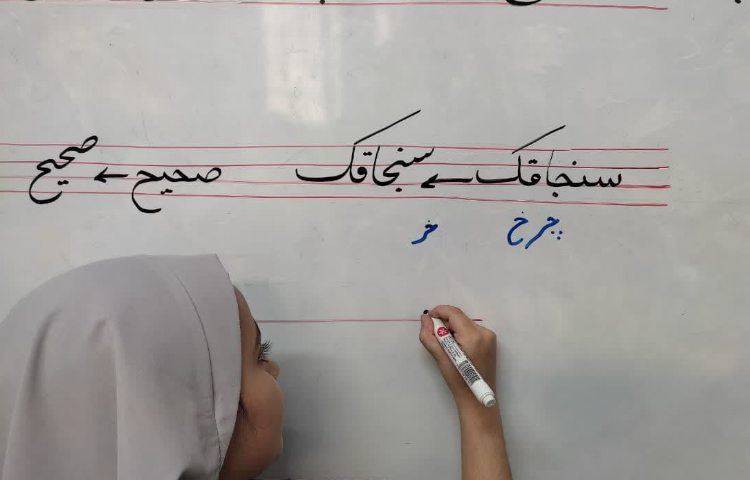 سنجاقک ← سنجاقک صحیح ← صحیح
چرخ خر